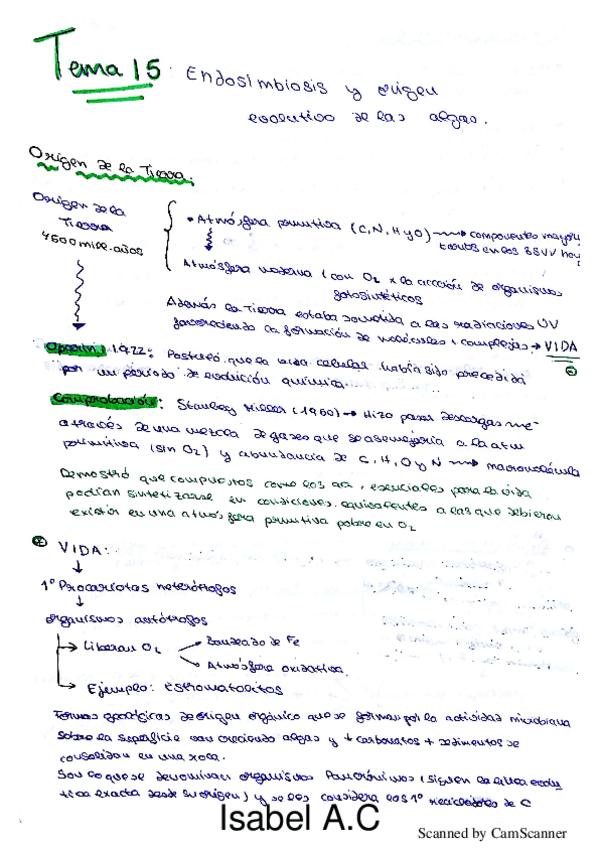 Tema 15: Endosimbiosis y origen
evolutivo de las algas.
Origen de la Tierra.
Origen de la
Tierra
4600 mill. años
• Atmósfera primitiva (C, N, H y O) → componentes mayori
tarios en los SSVV hoy
Atmósfera moderna (con O2 x la acción de organismos
fotosintéticos
Además la Tierra estaba sometida a las radiaciones UV
favoreciendo la formación de moléculas + complejas → VIDA
Oparin, 1922: Postuló que la vida celular había sido precedida
por un período de evolución química.
Comprobación: Stanley Miller (1960) → Hizo pasar descargas
a través de una mezcla de gases que se asemejaría a la atm
primitiva (sin O2) y abundancia de C, H, O y N → macromolécula
Demostró que compuestos como los aa, esenciales para la vida
podían sintetizarse en condiciones equivalentes a las que debieron
existir en una atmósfera primitiva pobre en O2
* VIDA:
↓
1º Procariotas heterótrofos
↓
organismos autótrofos
→ Liberan O2
Bandeado de Fe
Atmósfera oxidativa.
→ Ejemplo: Estromatolitos
Formas geológicas de origen orgánico que se forman por la actividad microbiana
Sobre la superficie van creciendo algas y + carbonatos + sedimentos se
consolidan en una roca.
Son lo que se denominan organismos Pancrónicos (siguen la línea evolu
tiva exacta desde su origen) y se les considera los 1º recicladores de C
Isabel A.C
Scanned by CamScanner